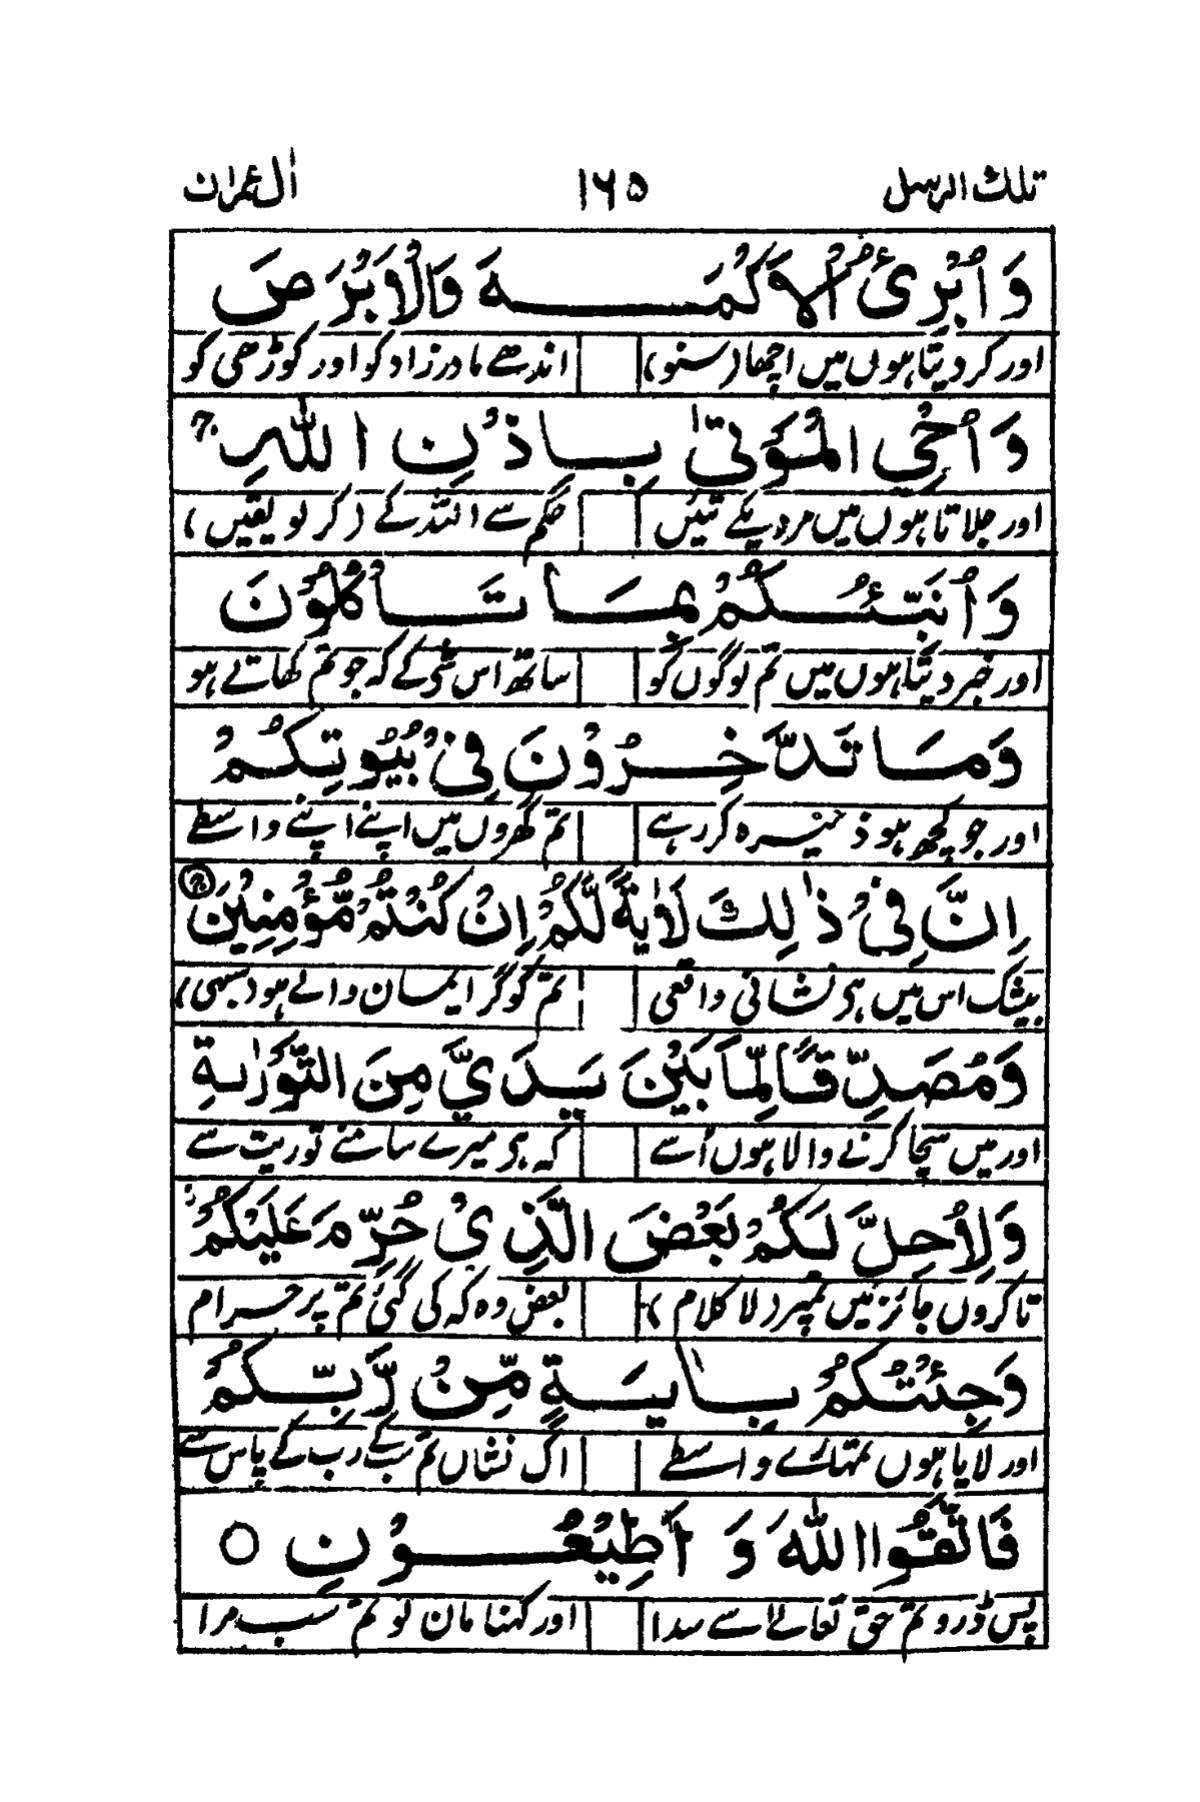 تلك الرسل ۱۶۵ اٰل عمرٰن
وَ اُبْرِئُ الْاَكْمَهَ وَالْاَبْرَصَ
اور کر دیتا ہوں میں اچھا (سنو) اندھے مادرزاد کو اور کوڑھی کو
وَ اُحْيِ الْمَوْتٰى بِاِذْنِ اللّٰهِ
اور جلاتا ہوں میں مردیکے تئیں حکم سے اللہ کے (کر لو یقیں)
وَ اُنَبِّئُكُمْ بِمَا تَاْكُلُوْنَ
اور خبر دیتا ہوں میں تم لوگوں کو ساتھ اس شئے کے کہ جو تم کھاتے ہو
وَمَا تَدَّخِرُوْنَ فِيْ بُيُوْتِكُمْ
اور جو کچھ ہو ذخیرہ کر رہے تم گھروں میں اپنے اپنے واسطے
اِنَّ فِيْ ذٰلِكَ لَاٰيَةً لَّكُمْ اِنْ كُنْتُمْ مُّؤْمِنِيْنَ
بیشک اس میں ہے نشانی واقعی تم کو گر ایمان والے ہو (سبھی)
وَمُصَدِّقًا لِّمَا بَيْنَ يَدَيَّ مِنَ التَّوْرٰىةِ
اور میں سچا کرنے والا ہوں اُسے کہ ہے میرے سامنے توریت سے
وَلِاُحِلَّ لَكُمْ بَعْضَ الَّذِيْ حُرِّمَ عَلَيْكُمْ
تا کروں جائز میں تمپر (لا کلام) بعض وہ کہ کی گئی تم پر حرام
وَجِئْتُكُمْ بِاٰيَةٍ مِّنْ رَّبِّكُمْ
اور لایا ہوں تمہارے واسطے اک نشاں تم سب کے رب کے پاس سے
فَاتَّقُوا اللّٰهَ وَ اَطِيْعُوْنِ ○
پس ڈرو تم حق تعالےٰ سے سدا اور کہنا مان لو تم سب مرا